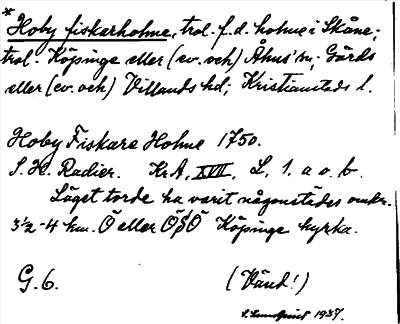 * Hoby fiskarholme, trol. f.d. holme i Skåne;
trol. Köpinge eller (ev. och) Åhus' sn; Gärds
eller (ev. och) Villands hd; Kristianstads l.
Hoby Fiskare Holme 1750.
S. H. Radier. Kr A, XVII, L, 1. a o. b.
Läget torde ha varit någonstädes omkr.
3½-4 km. Ö eller ÖSÖ Köpinge kyrka.
G. 6. (Vänd!)
1937.